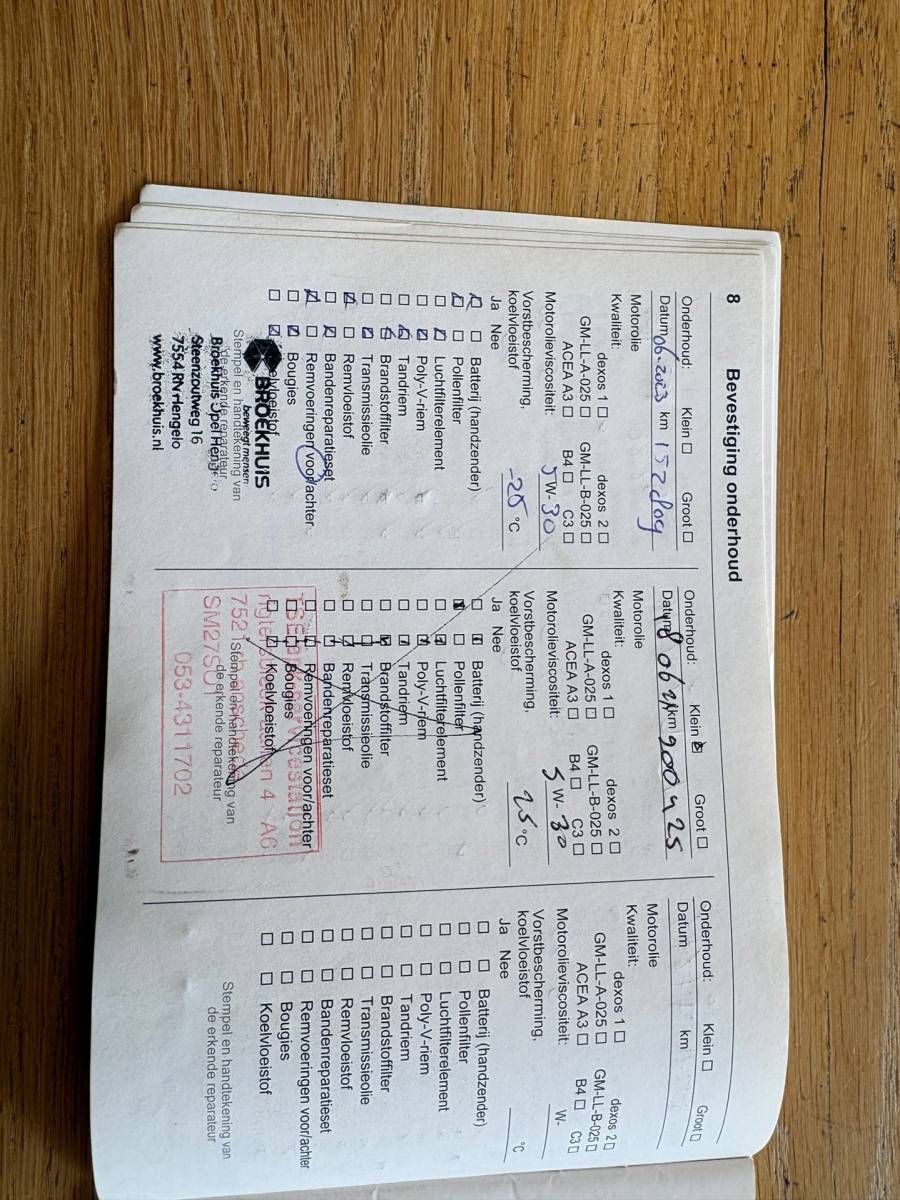 8 Bevestiging onderhoud
Onderhoud: Klein □ Groot □
Datum 06-2023 km
Motorolie
Kwaliteit:
dexos 1 □ dexos 2 □
GM-LL-A-025 □ GM-LL-B-025 □
ACEA A3 □ B4 □ C3 □
Motorolieviscositeit: 5W-30
Vorstbescherming,
koelvloeistof -25 °C
Ja Nee
Batterij (handzender)
Pollenfilter
Luchtfilterelement
Poly-V-riem
Tandriem
Brandstoffilter
Transmissieolie
Remvloeistof
Bandenreparatieset
Remvoeringen voor/achter
Bougies
Koelvloeistof
BROEKHUIS
beweegt mensen
Stempel en handtekening van
de erkende reparateur
Broekhuis Opel Hengelo
Steenzoutweg 16
7554 RV Hengelo
www.broekhuis.nl
Onderhoud: Klein ☒ Groot □
Datum 18 06 24 km 200425
Motorolie
Kwaliteit:
dexos 1 □ dexos 2 □
GM-LL-A-025 □ GM-LL-B-025 □
ACEA A3 □ B4 □ C3 □
Motorolieviscositeit: 5W-30
Vorstbescherming,
koelvloeistof 25 °C
Ja Nee
Batterij (handzender)
Pollenfilter
Luchtfilterelement
Poly-V-riem
Tandriem
Brandstoffilter
Transmissieolie
Remvloeistof
Bandenreparatieset
Remvoeringen voor/achter
Bougies
Koelvloeistof
4 A6
7521
Stempel en handtekening van
de erkende reparateur
053-4311702
Onderhoud: Klein □ Groot □
Datum km
Motorolie
Kwaliteit:
dexos 1 □ dexos 2 □
GM-LL-A-025 □ GM-LL-B-025 □
ACEA A3 □ B4 □ C3 □
Motorolieviscositeit: W-
Vorstbescherming,
koelvloeistof °C
Ja Nee
□ □ Batterij (handzender)
□ □ Pollenfilter
□ □ Luchtfilterelement
□ □ Poly-V-riem
□ □ Tandriem
□ □ Brandstoffilter
□ □ Transmissieolie
□ □ Remvloeistof
□ □ Bandenreparatieset
□ □ Remvoeringen voor/achter
□ □ Bougies
□ □ Koelvloeistof
Stempel en handtekening van
de erkende reparateur